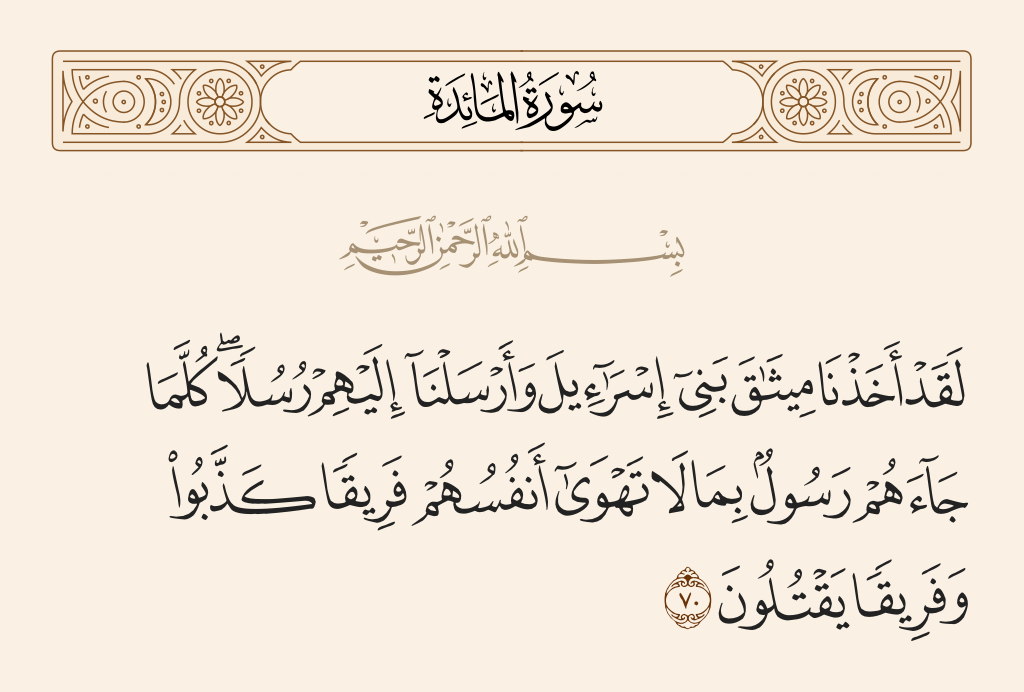 سُورَةُ المَائِدَةِ
بِسْمِ ٱللَّهِ ٱلرَّحْمَٰنِ ٱلرَّحِيمِ
لَقَدْ أَخَذْنَا مِيثَٰقَ بَنِىٓ إِسْرَٰٓءِيلَ وَأَرْسَلْنَآ إِلَيْهِمْ رُسُلًا ۖ كُلَّمَا
جَآءَهُمْ رَسُولٌۢ بِمَا لَا تَهْوَىٰٓ أَنفُسُهُمْ فَرِيقًا كَذَّبُوا۟
وَفَرِيقًا يَقْتُلُونَ ٧٠